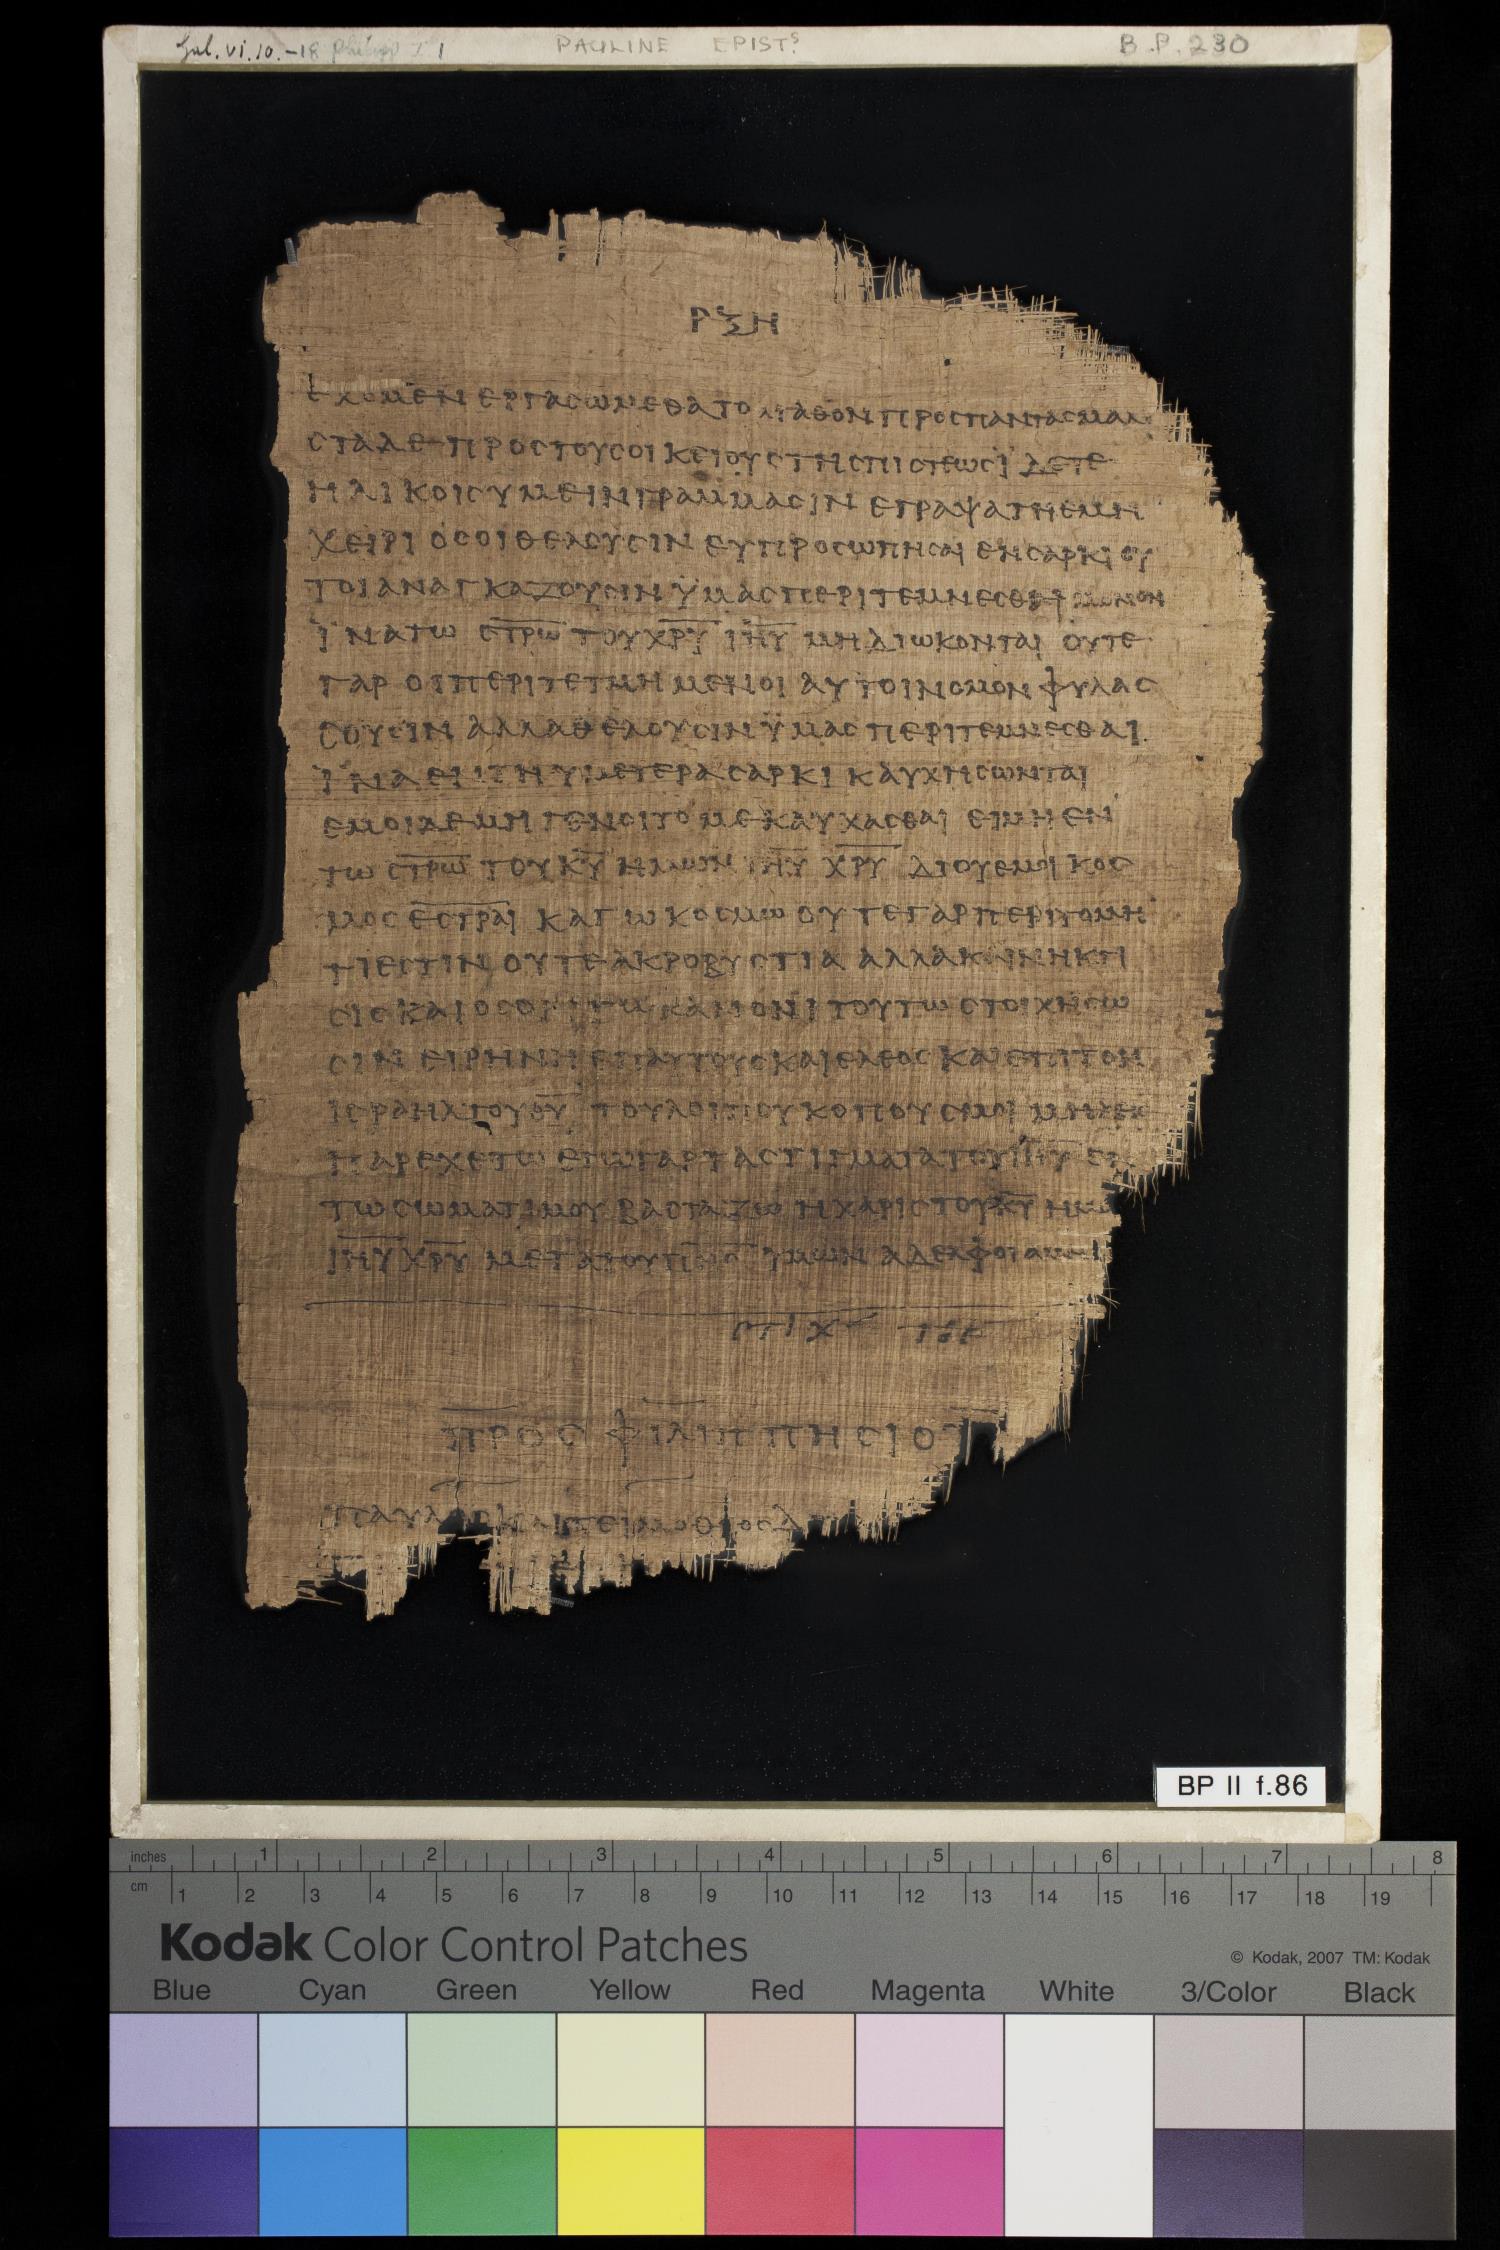 Gal. vi. 10.-18 Philipp I 1 PAULINE EPISTS. B.P. 230
ΡΞΗ
ΕΧΟΜΕΝ ΕΡΓΑCΩΜΕΘΑ ΤΟ ΑΓΑΘΟΝ ΠΡΟCΠΑΝΤΑCΜΑΛΙ
CΤΑΔΕ ΠΡΟCΤΟΥCΟΙΚΕΙΟΥCΤΗCΠΙCΤΕΩC ΪΔΕΤΕ
ΗΛΙΚΟΙCΥΜΕΙΝΓΡΑΜΜΑCΙΝ ΕΓΡΑΨΑΤΗΕΜΗ
ΧΕΙΡΙ ΟCΟΙΘΕΛΟΥCΙΝ ΕΥΠΡΟCΩΠΗCΑΙ ΕΝCΑΡΚΙ ΟΥ
ΤΟΙΑΝΑΓΚΑΖΟΥCΙΝ ΫΜΑCΠΕΡΙΤΕΜΝΕCΘΑΙ ΜΟΝΟΝ
ΪΝΑΤΩ CΤΡΩ ΤΟΥΧΡΥ ΙΗΥ ΜΗΔΙΩΚΟΝΤΑΙ ΟΥΤΕ
ΓΑΡ ΟΙΠΕΡΙΤΕΤΜΗΜΕΝΟΙ ΑΥΤΟΙΝΟΜΟΝ ΦΥΛΑC
CΟΥCΙΝ ΑΛΛΑΘΕΛΟΥCΙΝ ΫΜΑC ΠΕΡΙΤΕΜΝΕCΘΑΙ
ΪΝΑΕΝΤΗΥΜΕΤΕΡΑCΑΡΚΙ ΚΑΥΧΗCΩΝΤΑΙ
ΕΜΟΙΔΕΜΗ ΓΕΝΟΙΤΟ ΜΕΚΑΥΧΑCΘΑΙ ΕΙΜΗΕΝ
ΤΩ CΤΡΩ ΤΟΥΚΥ ΗΜΩΝ ΙΗΥ ΧΡΥ ΔΙΟΥΕΜΟΙ ΚΟC
ΜΟC ΕCΤΡΑΙ ΚΑΓΩ ΚΟCΜΩ ΟΥΤΕΓΑΡΠΕΡΙΤΟΜΗ
ΤΙΕCΤΙΝ ΟΥΤΕΑΚΡΟΒΥCΤΙΑ ΑΛΛΑΚΑΙΝΗΚΤΙ
CΙC ΚΑΙΟCΟΙ ΤΩ ΚΑΝΟΝΙ ΤΟΥΤΩ CΤΟΙΧΗCΩ
CΙΝ ΕΙΡΗΝΗ ΕΠΑΥΤΟΥCΚΑΙΕΛΕΟC ΚΑΙΕΠΙΤΟΝ
ΙCΡΑΗΛΤΟΥΘΥ ΤΟΥΛΟΙΠΟΥ ΚΟΠΟΥC ΜΟΙ ΜΗΔΕΙC
ΠΑΡΕΧΕΤΩ ΕΓΩΓΑΡΤΑCΤΙΓΜΑΤΑΤΟΥΙΗΥ ΕΝ
ΤΩCΩΜΑΤΙΜΟΥ ΒΑCΤΑΖΩ ΗΧΑΡΙCΤΟΥΚΥ ΗΜΩ
ΙΗΥ ΧΡΥ ΜΕΤΑΤΟΥΠΝΟC ΥΜΩΝ ΑΔΕΛΦΟΙ ΑΜΗΝ
CΤΙΧ ΤΟΕ
ΠΡΟC ΦΙΛΙΠΠΗCΙΟΥ
ΠΑΥΛΟC ΚΑΙ ΤΕΙΜΟΘΕΟC Δ
BP II f.86
inches 1 2 3 4 5 6 7 8
cm 1 2 3 4 5 6 7 8 9 10 11 12 13 14 15 16 17 18 19
Kodak Color Control Patches © Kodak, 2007 TM: Kodak
Blue Cyan Green Yellow Red Magenta White 3/Color Black